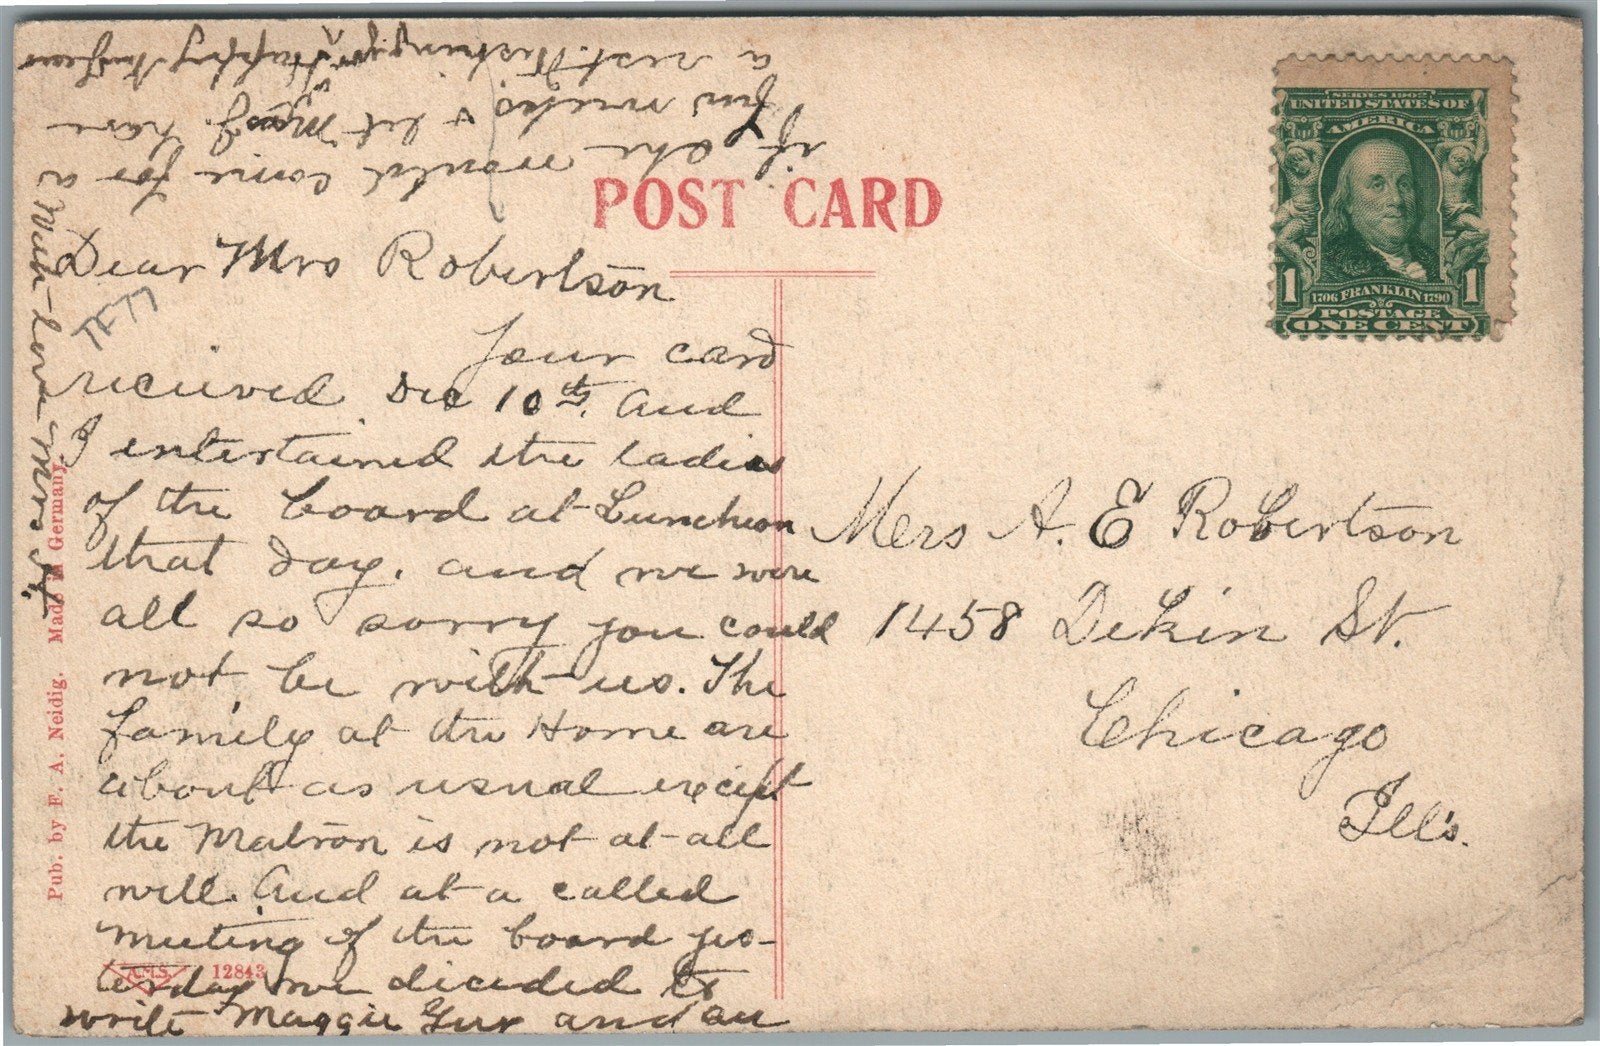 POST CARD
SERIES 1902
UNITED STATES OF
AMERICA
1 1706 FRANKLIN 1790 1
POSTAGE
ONE CENT
Dear Mrs Robertson
Your card
received Dec 10th. And
I entertained the ladies
of the board at Luncheon
that day. and we were
all so sorry you could
not be with us. The
family at the Home are
about as usual except
the Matron is not at all
well. And at a called
meeting of the board yes-
terday we decided to
write Maggie and
if she would come for a
few weeks & let Mrs have
a rest. Wishing you Happy New Year
Much love Mrs H.
Mers A. E Robertson
1458 Dekin St.
Chicago
Ill's.
Pub. by F. A. Neidig. Made in Germany.
A.M.S. 12843